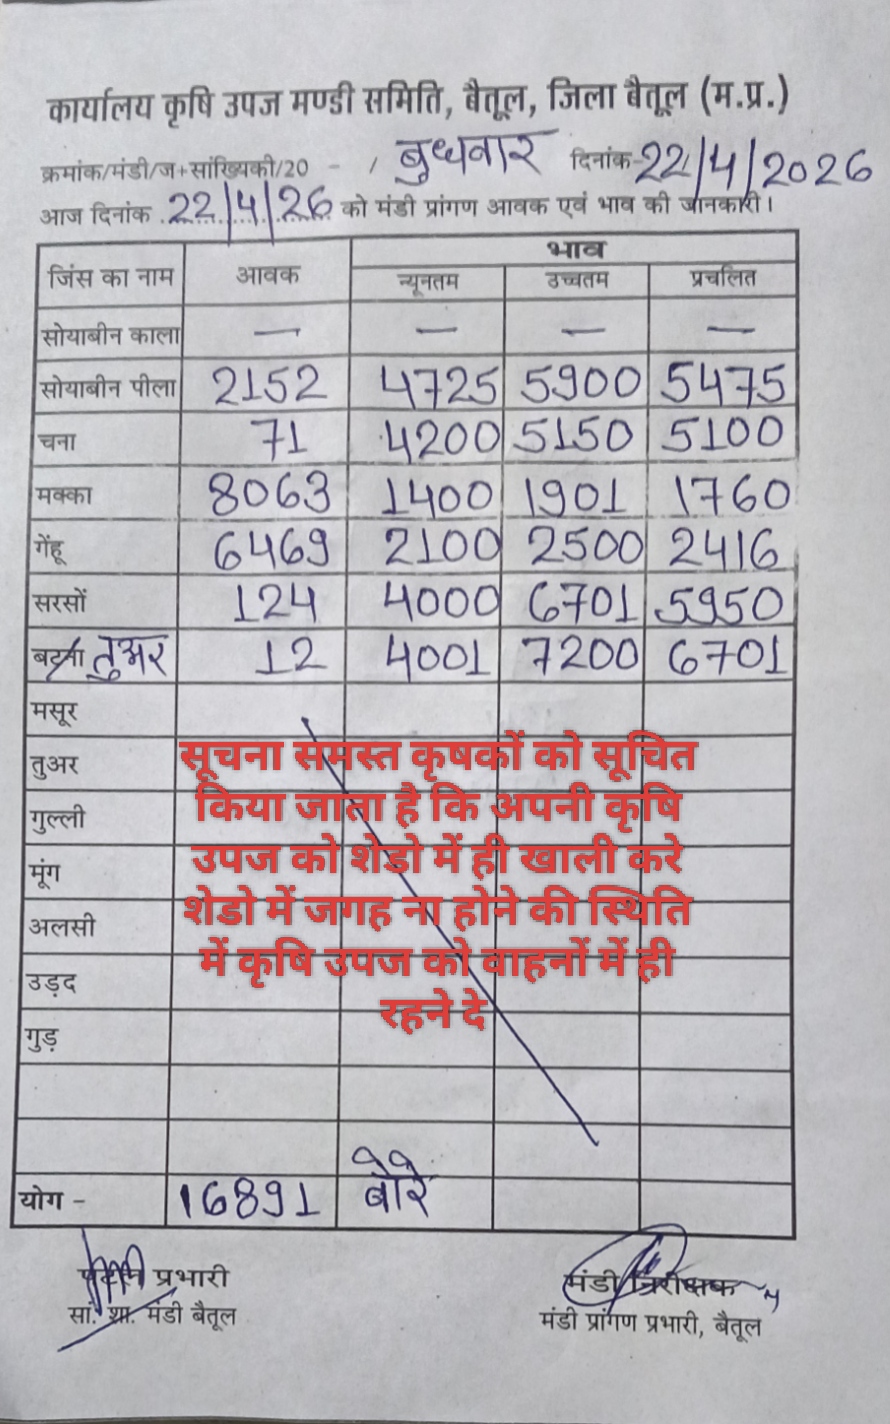 कार्यालय कृषि उपज मण्डी समिति, बैतूल, जिला बैतूल (म.प्र.)
क्रमांक/मंडी/ज+सांख्यिकी/20 - / बुधवार दिनांक-22/4/2026
आज दिनांक 22/4/26 को मंडी प्रांगण आवक एवं भाव की जानकारी।
जिंस का नाम आवक भाव
न्यूनतम उच्चतम प्रचलित
सोयाबीन काला — — — —
सोयाबीन पीला 2152 4725 5900 5475
चना 71 4200 5150 5100
मक्का 8063 1400 1901 1760
गेंहू 6469 2100 2500 2416
सरसों 124 4000 6701 5950
बटना तुअर 12 4001 7200 6701
मसूर
तुअर
गुल्ली
मूंग
अलसी
उड़द
गुड़
सूचना समस्त कृषकों को सूचित
किया जाता है कि अपनी कृषि
उपज को शेडो में ही खाली करे
शेडो में जगह ना होने की स्थिति
में कृषि उपज को वाहनों में ही
रहने दे
योग - 16891 बोरे
प्रभारी
सां. शा. मंडी बैतूल
मंडी निरीक्षक
मंडी प्रांगण प्रभारी, बैतूल